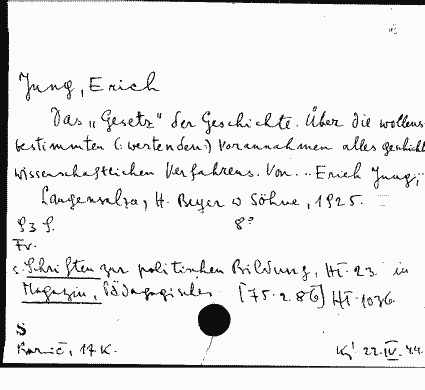 Jung, Erich
Das „Gesetz" der Geschichte. Über die wollens-
bestimmten (: wertenden :) Vorannahmen alles geschicht-
wissenschaftlichen Verfahrens. Von .. Erich Jung,
Langensalza, H. Beyer u Söhne, 1925.
93 S. 8°
Fr.
s. Schriften zur politischen Bildung, Ht. 23. in
Magazin, Pädagogisches. [75.2.86] Ht 1036.
S
17 K. 22.IV.44.